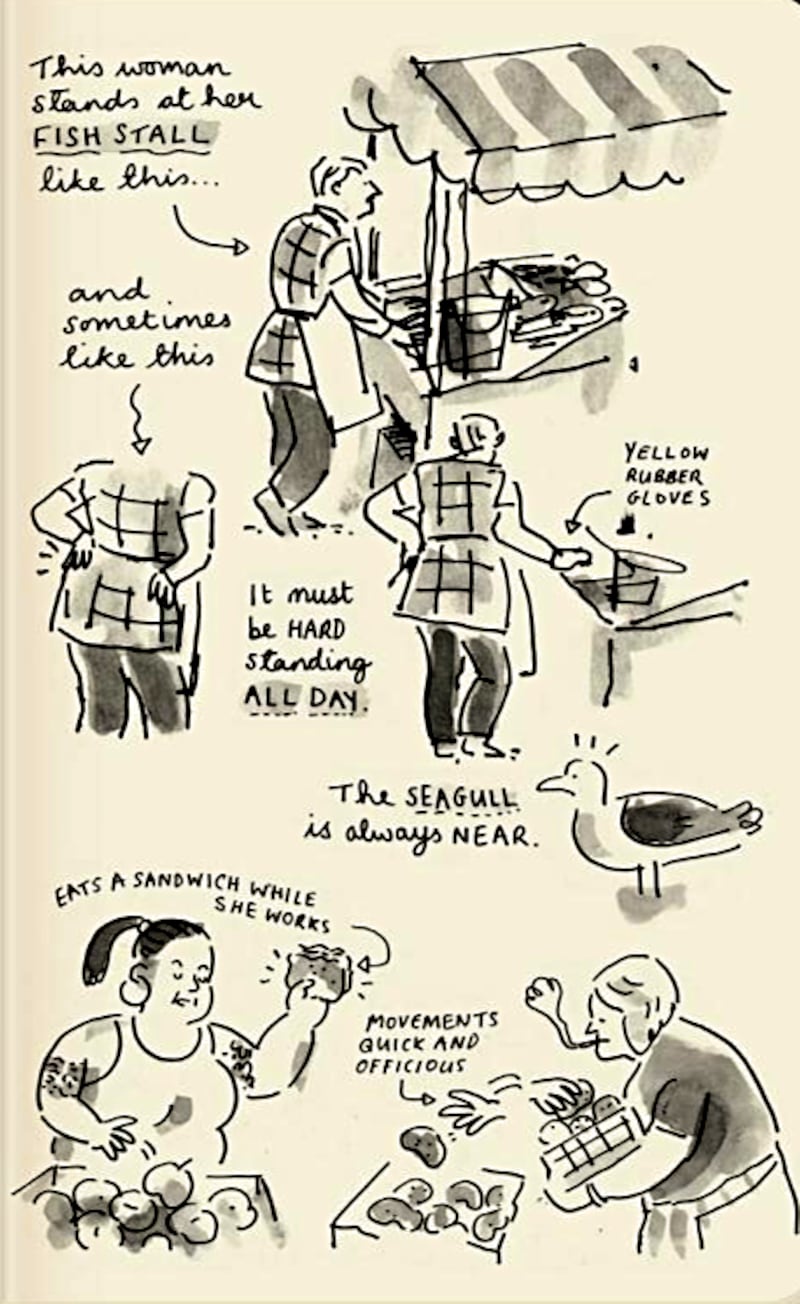 This woman
stands at her
FISH STALL
like this...
and
sometimes
like this
YELLOW
RUBBER
GLOVES
It must
be HARD
standing
ALL DAY.
The SEAGULL
is always NEAR.
EATS A SANDWICH WHILE
SHE WORKS
MOVEMENTS
QUICK AND
OFFICIOUS